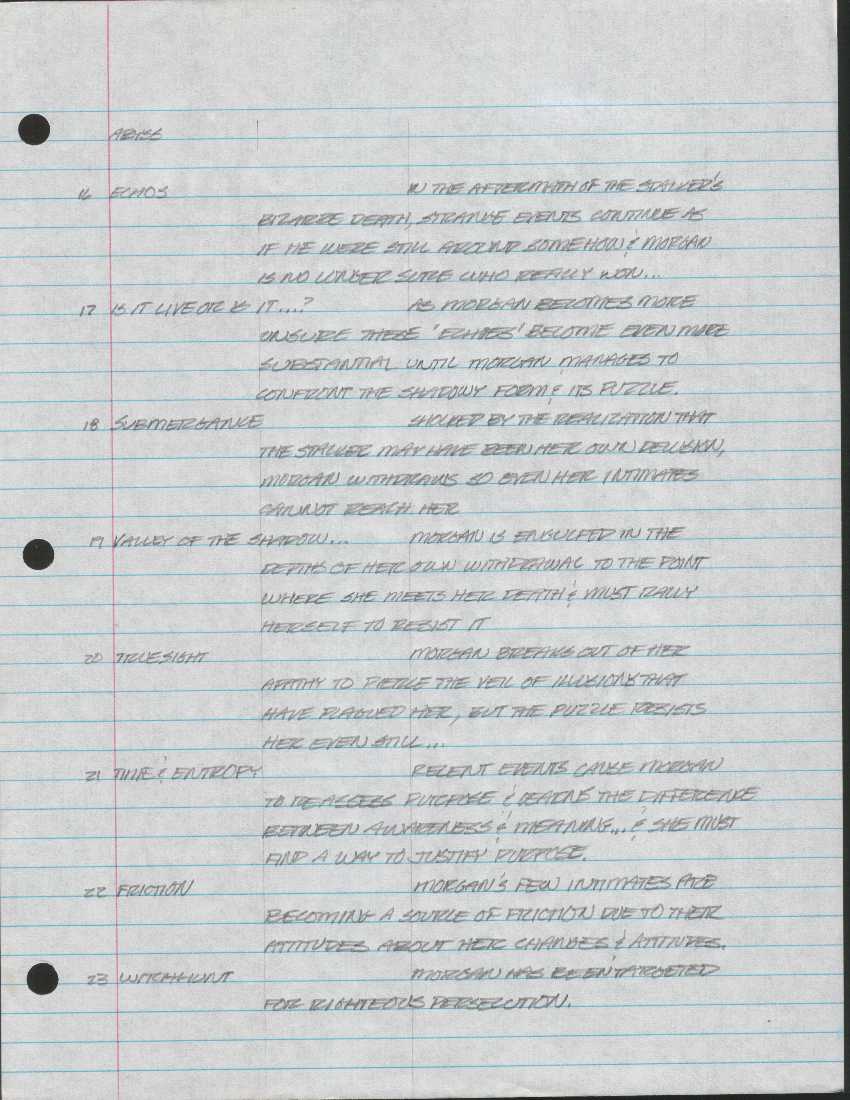 ABYSS
16 ECHOS IN THE AFTERMATH OF THE STALKER'S
BIZARRE DEATH, STRANGE EVENTS CONTINUE AS
IF HE WERE STILL AROUND SOMEHOW & MORGAN
IS NO LONGER SURE WHO REALLY WON...
17 IS IT LIVE OR IS IT....? AS MORGAN BECOMES MORE
UNSURE THESE 'ECHOES' BECOME EVEN MORE
SUBSTANTIAL UNTIL MORGAN MANAGES TO
CONFRONT THE SHADOWY FORM & ITS PUZZLE.
18 SUBMERGANCE SHOCKED BY THE REALIZATION THAT
THE STALKER MAY HAVE BEEN HER OWN DELUSION,
MORGAN WITHDRAWS SO EVEN HER INTIMATES
CANNOT REACH HER
19 VALLEY OF THE SHADOW... MORGAN IS ENGULFED IN THE
DEPTHS OF HER OWN WITHDRAWAL TO THE POINT
WHERE SHE MEETS HER DEATH & MUST RALLY
HERSELF TO RESIST IT
20 TRUESIGHT MORGAN BREAKS OUT OF HER
APATHY TO PIERCE THE VEIL OF ILLUSIONS THAT
HAVE PLAGUED HER, BUT THE PUZZLE RESISTS
HER EVEN STILL...
21 TIME & ENTROPY RECENT EVENTS CAUSE MORGAN
TO REASSESS PURPOSE & LEARNS THE DIFFERENCE
BETWEEN AWARENESS & MEANING... & SHE MUST
FIND A WAY TO JUSTIFY PURPOSE.
22 FRICTION MORGAN'S FEW INTIMATES ARE
BECOMING A SOURCE OF FRICTION DUE TO THEIR
ATTITUDES ABOUT HER CHANGES & ATTITUDES.
23 WITCHHUNT MORGAN HAS BEEN TARGETED
FOR RIGHTEOUS PERSECUTION.